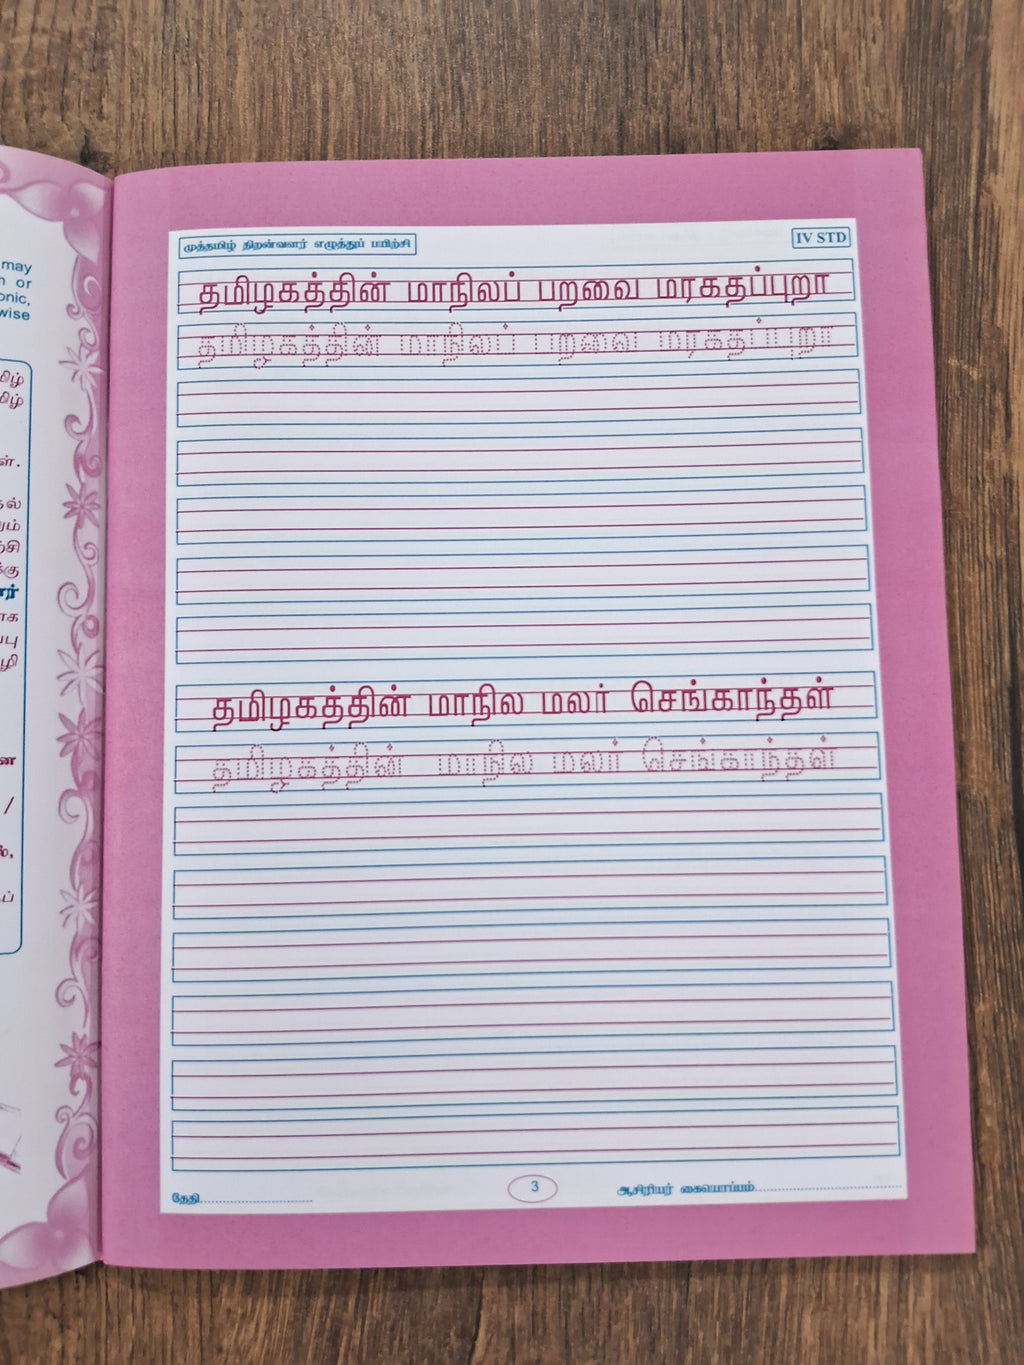 may
or
onic,
wise
முத்தமிழ் திறன்வளர் எழுத்துப் பயிற்சி
IV STD
தமிழகத்தின் மாநிலப் பறவை மரகதப்புறா
தமிழகத்தின் மாநிலப் பறவை மரகதப்புறா
தமிழகத்தின் மாநில மலர் செங்காந்தள்
தமிழகத்தின் மாநில மலர் செங்காந்தள்
தேதி
3
ஆசிரியர் கையொப்பம்